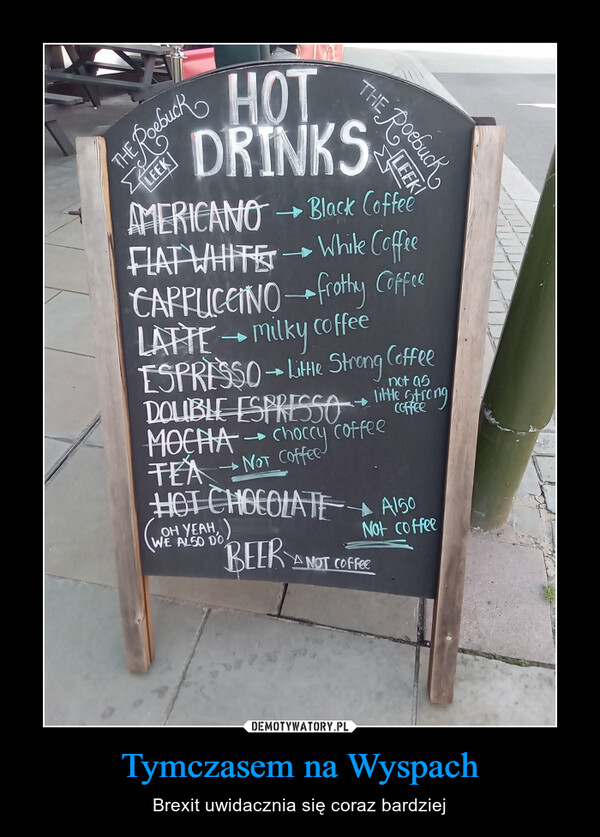 THE Roebuck LEEK
HOT
DRINKS
THE Roebuck LEEK
AMERICANO → Black Coffee
FLAT WHITE → White Coffee
CAPPUCCINO → frothy Coffee
LATTE → milky coffee
ESPRESSO → Little Strong Coffee
DOUBLE ESPRESSO → not as little strong coffee
MOCHA → choccy coffee
TEA → NOT Coffee
HOT CHOCOLATE → Also
Not coffee
(OH YEAH,
WE ALSO DO)
BEER NOT coffee
DEMOTYWATORY.PL
Tymczasem na Wyspach
Brexit uwidacznia się coraz bardziej